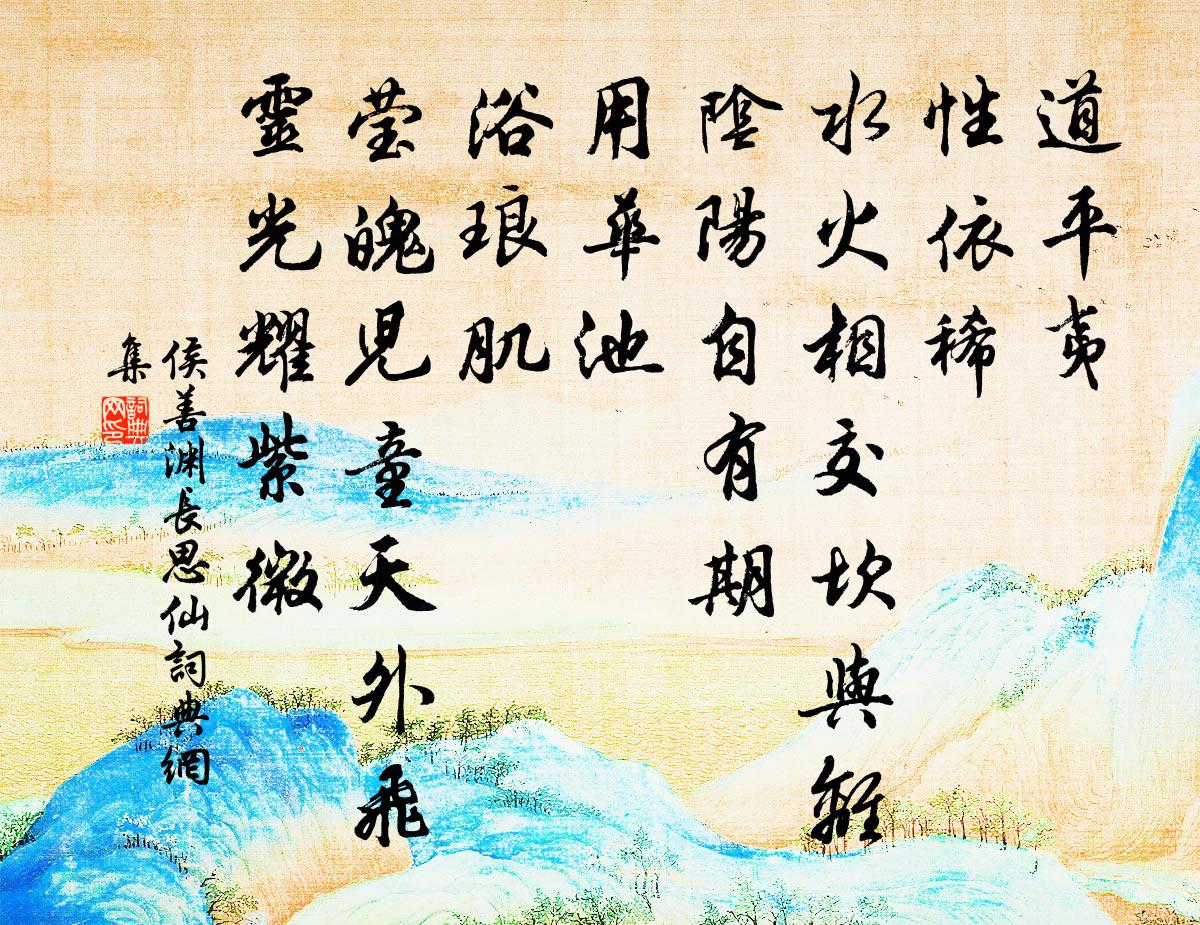 道平夷
性依稀
水火相交坎與離
陰陽自有期
用華池
浴琅肌
莹魄児童天外飛
靈光耀紫微
侯善渊長思仙詞典網
集
詞典網印